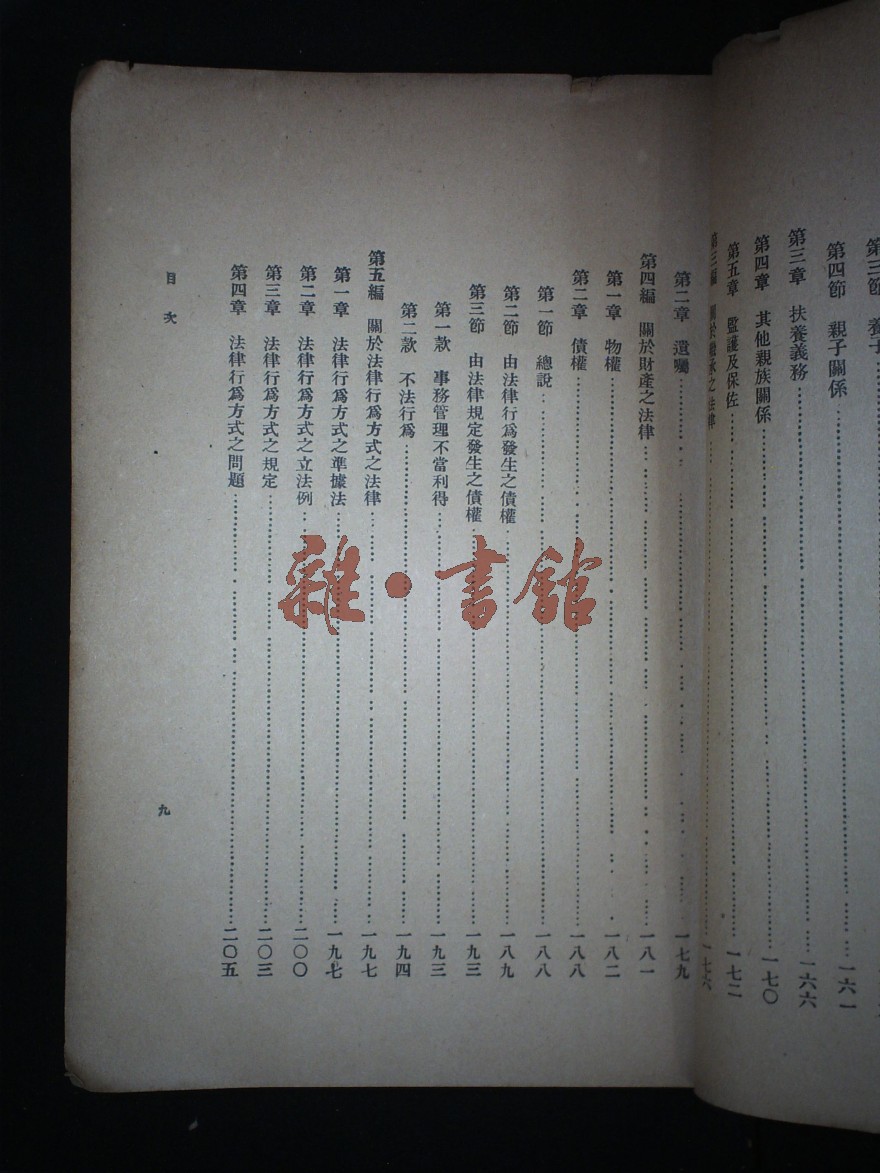 第三節 養子
第四節 親子關係……一六一
第三章 扶養義務……一六六
第四章 其他親族關係……一七〇
第五章 監護及保佐……一七二
第三編 關於繼承之法律……一七六
第二章 遺囑……一七九
第四編 關於財產之法律……一八一
第一章 物權……一八二
第二章 債權……一八八
第一節 總說……一八八
第二節 由法律行爲發生之債權……一八九
第三節 由法律規定發生之債權……一九三
第一款 事務管理不當利得……一九三
第二款 不法行爲……一九四
第五編 關於法律行爲方式之法律……一九七
第一章 法律行爲方式之準據法……一九七
第二章 法律行爲方式之立法例……二〇〇
第三章 法律行爲方式之規定……二〇三
第四章 法律行爲方式之問題……二〇五
目次
九
雜·書館